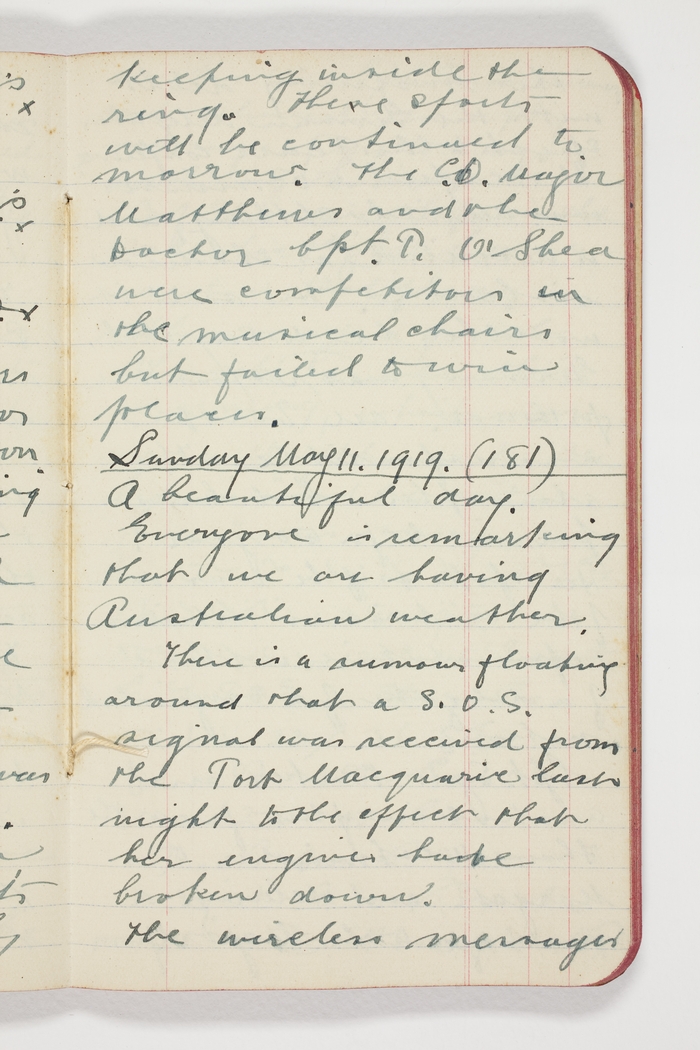 keeping inside the
ring. These sports
will be continued to
morrow. The C.O. Major
Matthews and the
Doctor Cpt. P. O'Shea
were competitors in
the musical chairs
but failed to win
places.
Sunday May 11. 1919. (181)
A beautiful day.
Everyone is remarking
that we are having
Australian weather.
There is a rumour floating
around that a S.O.S.
signal was received from
the Port Macquarie last
night to the effect that
her engines have
broken down.
The wireless messages